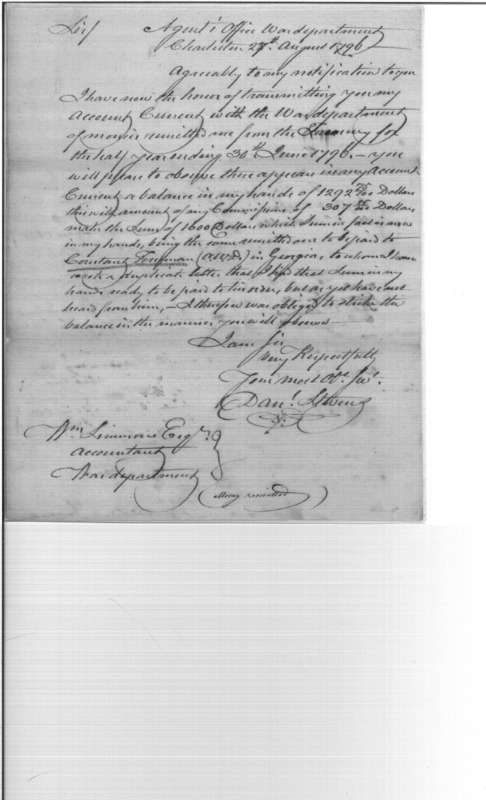 Sir/ Agent's Office War department
Charleston 27th August 1796
Agreeably to my notification to you
I have now the honor of transmitting you my
Account Current with the War department
of monies remitted me from the Treasury for
the half year ending 30th June 1796. — you
will please to observe there appears in my Account
Current a balance in my hands of 1292 Dollars
this with amount of my Commissions of 307 Dollars
make the Sum of 1600 Dollars which Sum in
in my hands, being the same remitted me to be paid to
Constant Freeman (ASWD) in Georgia, to whom I have
wrote a duplicate letter that I had that Sum in my
hands ready to be paid to his order, but as yet have not
heard from him, — I therefore was obliged to strike the
balance in the manner you will observe —
I am Sir
Very Respectfully
Your most Obt. Svt.
Danl. Stevens
Wm Simmons Esqr.
Accountant
War department
(Money remitted)